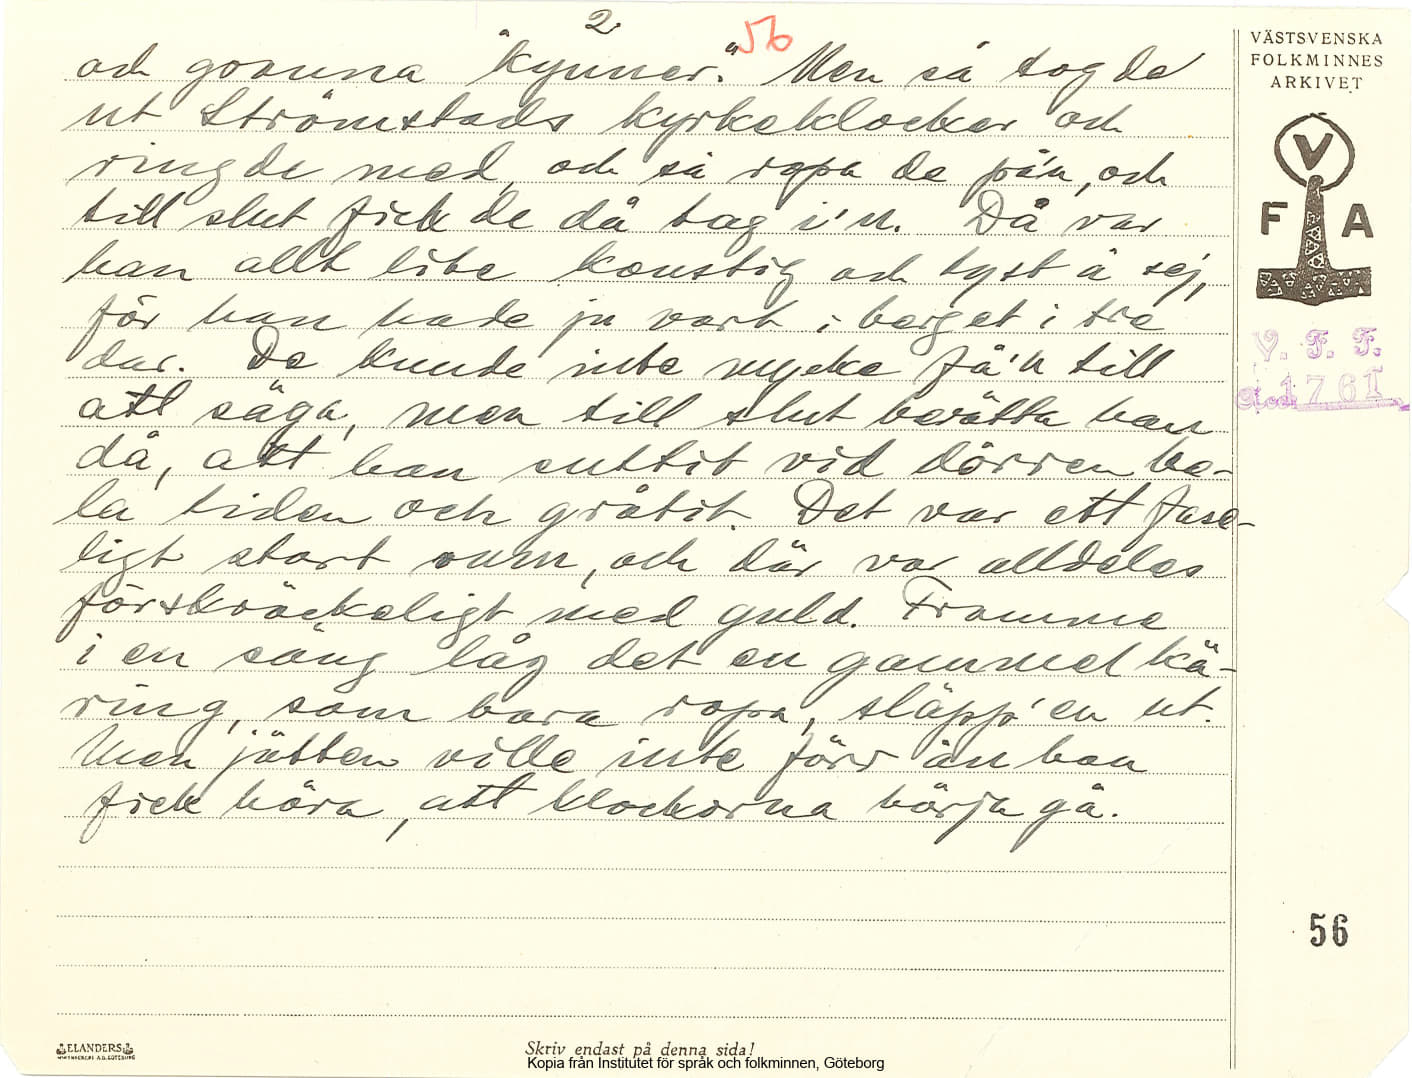 2.
56
och goanna "kynner." Men så tog de
ut Strömstads kyrkeklocker och
ringde med, och så ropa de på'n, och
till slut fick de då tag i'n. Då var
han allt lite konstig och tyst å sej,
för han hade ju vart i berget i tre
dar. De kunde inte mycke få'n till
att säga, men till slut berätta han
då, att han suttit vid dörren he-
la tiden och gråtit. Det var ett fase-
ligt stort rum, och där var alldeles
förskräckeligt med guld. Framme
i en säng låg det en gammel kä-
ring, som bara ropa, släpp'en ut.
Men jätten ville inte förr än han
fick höra, att klockorna börja gå.
VÄSTSVENSKA
FOLKMINNES
ARKIVET
V
F A
V. F. F.
1761
56
ELANDERS
Skriv endast på denna sida!
Kopia från Institutet för språk och folkminnen, Göteborg